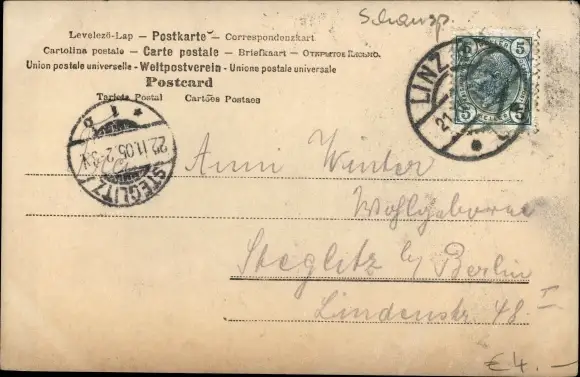 Schausp.
Levelező-Lap – Postkarte – Correspondenzkart
Cartolina postale – Carte postale – Briefkaart – Открытое письмо.
Union postale universelle - Weltpostverein - Unione postale universale
Postcard
Tarjeta Postal Cartões Postaes
LINZ
21
5 5
5 5
* 1 g
22.11.05.2-3N.
STEGLITZ
Anni Winter
Wohlgeboren
Steglitz b/ Berlin
Lindenstr 48 I
€ 4.–